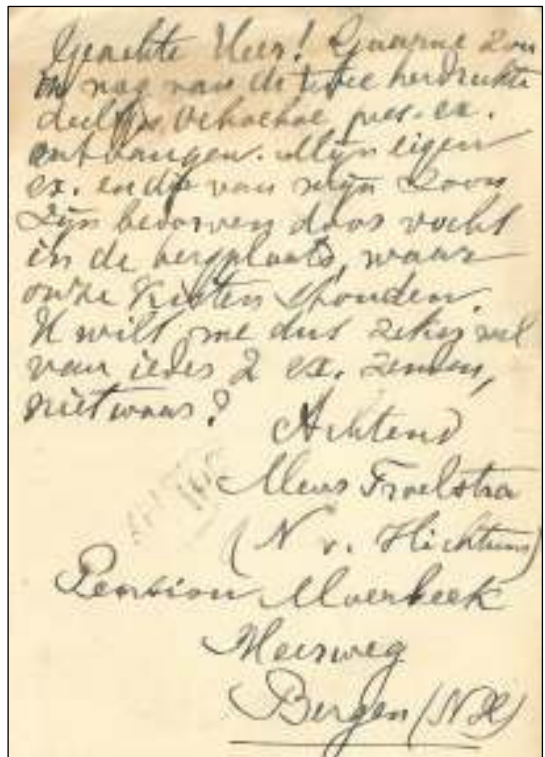 Geachte Heer! Gaarne zou
ik nog van de twee herdrukte
deeltjes pres. ex.
ontvangen. Mijn eigen
ex. en die van mijn zoon
zijn bedorven door vocht
in de bergplaats, waar
onze kisten stonden.
U wilt me dus zeker wel
van ieder 2 ex. zenden,
niet waar?
Achtend
Mevr Troelstra
(N. v. Hichtum)
Pension Moerbeek
Meerweg
Bergen (NH)